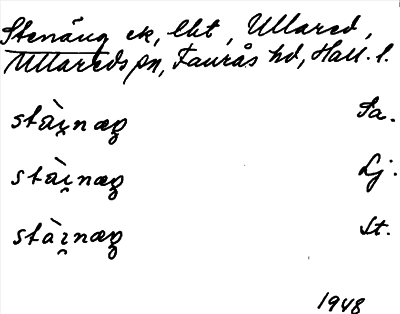 Stenäng ek, lht, Ullared,
Ullareds sn, Faurås hd, Hall. l.
stài̯næg Sa.
stài̯næg Lj.
stài̯næg St.
1948